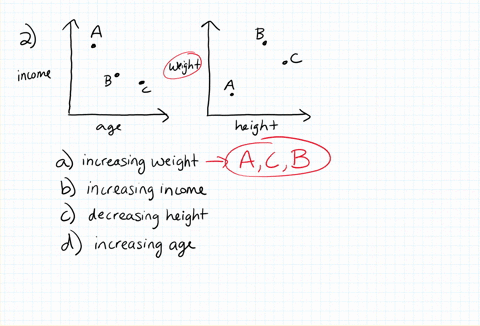 2)
A
B
C
income
age
B
C
A
weight
height
a) increasing weight → A, C, B
b) increasing income
c) decreasing height
d) increasing age